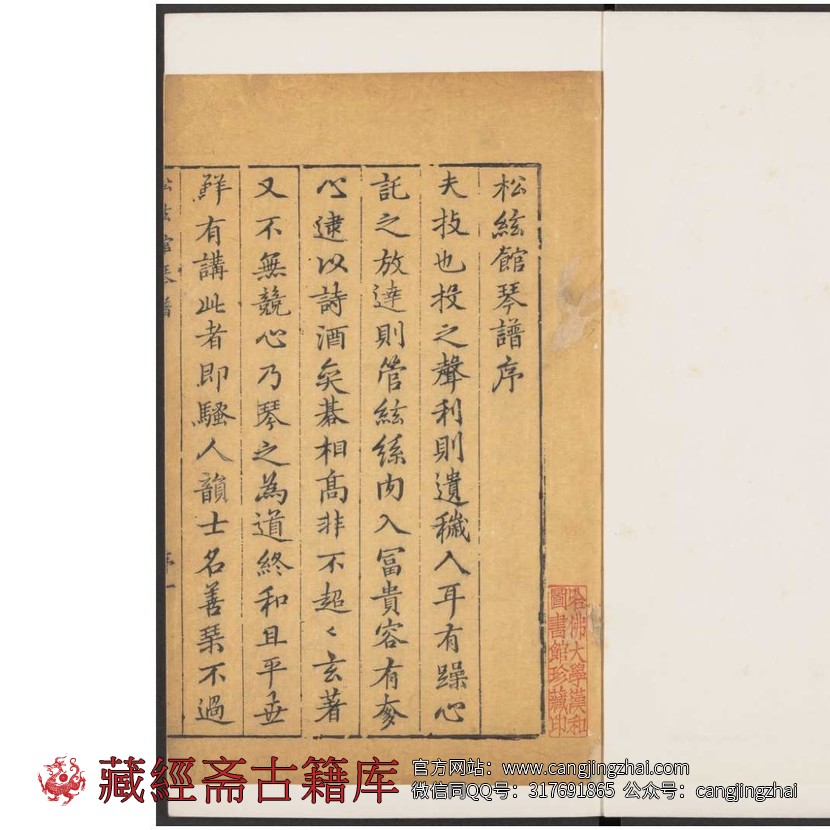 松絃館琴譜序
夫技也投之聲利則遺穢入耳有躁心
託之放達則管絃絲肉入冨貴容有奓
心逮以詩酒矣碁相髙非不超〻玄著
又不無競心乃琴之為道終和且平世
鮮有講此者即騷人韻士名善琹不過
哈佛大學漢和
圖書館珍藏印
藏經斋古籍库
官方网站：www.cangjingzhai.com
微信同QQ号：317691865 公众号：cangjingzhai